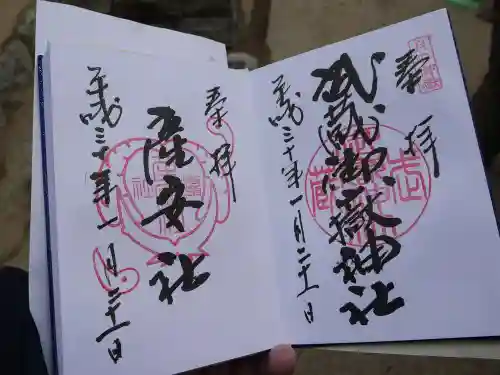 奉拝
武蔵御嶽神社
平成三十年一月二十一日
奉拝
産安社
平成三十年一月二十一日